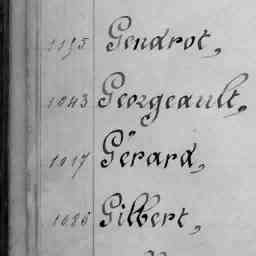 1195 Gendrot,
1043 Georgeault,
1017 Gérard,
1086 Gilbert,